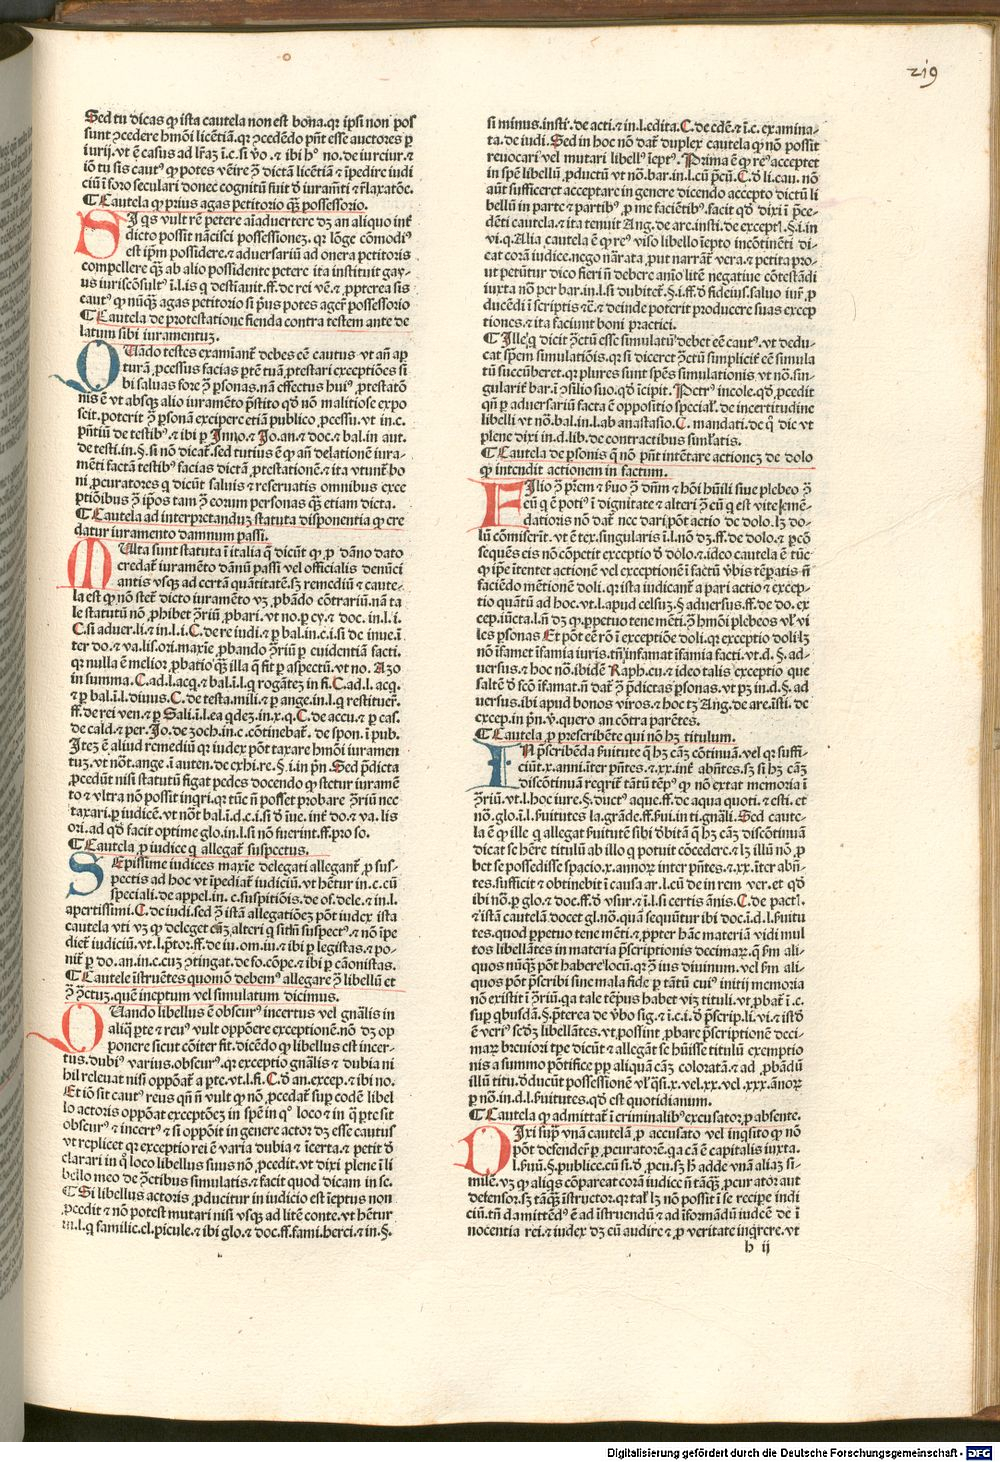 219
Sed tu dicas ꝙ ista cautela non est bona.qꝛ ipsi non pos
sunt ꝯcedere hmōi licētiā.qꝛ ꝯcedēdo pn̄t esse auctores ꝑ
iurij.vt ē casus ad lr̄az ī.c.si vo.
iō tu sis cautꝰ ꝙ potes vēire ꝯ̄ dictā licētiā ⁊ īpedire iudi
ciū ī foro seculari donec cognitū fuit d̄ iuramēti ⁊ r̄laxatōe.
¶ Cautela ꝙ prius agas petitorio qꝫ̄ possessorio.
SI qͥs vult rē petere aīaduertere dꝫ an aliquo int̄
dicto possit nācisci possessionez.qꝛ lōge cōmodiꝰ
est ip̄m possidere.⁊ aduersariū ad onera petitoris
compellere qꝫ̄ ab alio possidente petere ita instituit gay-
us iuriscōsultꝰ ī.l.is q destiauit.ff.de rei vē.⁊ ꝓpterea sis
cautꝰ ꝙ nūqꝫ̄ agas petitorio si pͥus potes ager̄ possessorio
¶ Cautela de protestatione fienda contra testem ante de
latum sibi iuramentuz.
QUādo testes examīant̄ debes eē cautus vt añ aꝑ
turā ꝓcessus facias ꝑtē tuā ꝓtestari exceptiōes si
bi saluas fore ꝯ̄ ꝑsonas.nā effectus huiꝰ ꝓtestatō
nis ē vt absqꝫ alio iuramēto p̄stito qd̓ nō malitiose expo
scit.poterit ꝯ̄ ꝑsonā excipere etiā publico ꝓcessu.vt in.c.
pn̄tiū de testibꝰ.⁊ ibi ꝑ Inno.⁊ Jo.an.⁊ doc.⁊ bal.in aut.
de testi.in.§.si nō dicat̄.sed tutius ē ꝙ añ delationē iura-
mēti factā testibꝰ facias dictā ꝓtestationē.⁊ ita vtunt̄ bo
ni ꝓcuratores q dicūt saluis ⁊ reseruatis omnibus exce
ptiōibus ꝯ̄ ip̄os tam ꝯ̄ eorum personas qꝫ̄ etiam dicta.
¶ Cautela ad interpretanduz statuta disponentia ꝙ cre
datur iuramento damnum passi.
MUlta sunt statuta ī italia q̄ dicūt ꝙ ꝓ dāno dato
credat̄ iuramēto dānū passi vel officialis denūci
antis vsqꝫ ad certā quātitatē.sꝫ remediū ⁊ caute-
la est ꝙ nō stet̄ dicto iuramēto vꝫ ꝓbādo cōtrariū.nā ta
le statutū nō ꝓhibet ꝯ̄riū ꝓbari.vt no.ꝑ cy.⁊ doc.in.l.i.
C.si aduer.li.⁊ in.l.i.C.de re iudi.⁊ ꝑ bal.in.c.i.si de inue.ī
ter do.⁊ va.lis.ori.maxie ꝓbando ꝯ̄riū ꝑ euidentiā facti.
qꝛ nulla ē melior ꝓbatio qꝫ̄ illa q̄ fit ꝑ aspectū.vt no. Azo
in summa.C.ad.l.acq.⁊ bal.ī.l.q rogātez in fi.C.ad.l. acq.
⁊ ꝑ bal.ī.l.diuus.C.de testa.mili.⁊ ꝑ ange.in.l.q restituer̄.
ff.de rei ven.⁊ ꝑ Sali.ī.l.ea qdeꝫ.in.x.q.C.de accu.⁊ ꝑ cas.
de cald.⁊ per.Jo.de zoch.in.c.cōtinebat̄. de spon.ī pub.
Itez ē aliud remediū qꝛ iudex pōt taxare hmōi iuramen
tuz.vt nōt.ange.ī auten.de exhi.re.§.i.in pn̄. Sed p̄dicta
ꝓcedūt nisi statutū figat pedes docendo ꝙ stetur iuramē
to ⁊ vltra nō possit inqri.qꝛ tūc n̄ posset probare ꝯ̄riū nec
taxari.ꝑ iudicē.vt nōt̄ bal.ī.d.c.i.si d̄ īue.int̄ do.⁊ va.lis
ori.ad qd̓ facit optime glo.in.l.si nō fuerint.ff.pro so.
¶ Cautela ꝓ iudice q allegat̄ suspectus.
SEpissime iudices maxīe delegati allegant̄ ꝓ sus-
pectis ad hoc vt īpediat̄ iudiciū.vt hētur in.c.cū
speciali.de appel.in.c.suspitiōis.de of.dele.⁊ in.l.
apertissimi.C.de iudi.sed ꝯ̄ istā allegationeꝫ pōt iudex ista
cautela vti vꝫ ꝙ deleget cāz alteri q sitn̄ suspectꝰ.⁊ nō īpe
diet̄ iudiciū.vt.l.p̄tor.ff.de iu.om.iu.⁊ ibi ꝑ legistas.⁊ po-
nit̄ ꝑ do.an.in.c.cuz ꝯtingat.de fo.cōpe.⁊ ibi ꝑ cāonistas.
¶ Cautele īstruētes quomō debemꝰ allegare ꝯ̄ libellū et
ꝯ̄ ꝯ̄ctuz.quē ineptum vel simulatum dicimus.
QUando libellus ē obscurꝰ incertus vel gnālis in
aliq̄ ꝑte ⁊ reuꝰ vult oppōere exceptionē.nō dꝫ op
ponere sicut cōiter fit.dicēdo ꝙ libellus est incer-
tus.dubiꝰ varius.obscurꝰ.qꝛ exceptio gnālis ⁊ dubia ni
hil releuat nisi oppōat̄ a ꝑte.vt.l.fi.C.d̄ an.excep.⁊ ibi no.
Et iō sit cautꝰ reus qn̄ n̄ vult ꝙ nō ꝓcedat̄ suꝑ codē libel
lo actoris oppōat exceptōeꝫ in spē in qͦ loco ⁊ in q̄ ꝑte sit
obscurꝰ ⁊ incertꝰ ⁊ si oppōit in genere actor dꝫ esse cautus
vt replicet qꝛ exceptio rei ē varia dubia ⁊ īcerta.⁊ petit d̄
clarari in qͦ loco libellus suus nō ꝓcedit.vt dixi plene ī li
bello meo de ꝯ̄ctibus simulatis.⁊ facit quod dicam in se.
¶ Si libellus actoris ꝓducitur in iudicio est īeptus non
ꝓcedit ⁊ nō potest mutari nisi vsqꝫ ad litē conte.vt hētur
in.l.q̄ familie.el.picule.⁊ ibi glo.⁊ doc.ff.fami.herci.⁊ in.§.
si minus.insti.de acti.⁊ in.l.edita.C.de edē.⁊ ī.c. examina-
ta.de iudi.Sed in hoc nō dat̄ duplex cautela ꝙ nō possit
reuocari vel mutari libellꝰ īeptꝰ.Prima ē ꝙ reꝰ acceptet
in spē libellū ꝓductū vt nō.bar.in.l.cū p̄cū.C.d̄ li.cau.nō
aūt sufficeret acceptare in genere dicendo accepto dictū li
bellū in parte ⁊ partibꝰ ꝓ me faciētibꝰ.facit qd̓ dixi ī p̄ce-
dēti cautela.⁊ ita tenuit Ang.de are.insti.de except.§.i.in
vi.q.Alia cautela ē ꝙ reꝰ viso libello īepto incōtinēti di-
cat corā iudice.nego narrata ꝓut narrāt̄ vera.⁊ petita pro-
ut petūtur dico fieri n̄ debere anīo litē negatiue cōtestādi
iuxta nō per bar.in.l.si dubitet̄.§.i.ff.d̄ fideius.saluo iur̄ ꝓ
ducēdi ī scriptis ⁊c̄.⁊ deinde poterit producere suas excep
tiones.⁊ ita faciunt boni practici.
¶ Ille q̄ dicit ꝯ̄ctū esse simulatū debet eē cautꝰ.vt dedu-
cat sp̄em simulatiōis.qꝛ si diceret ꝯ̄ctū simplicit̄ eē simula
tū succūberet.qꝛ plures sunt spēs simulationis.vt nō.sin-
gularit̄ bar.ī ꝯsilio suo.qd̓ īcipit. Petrꝰ incole.qd̓.ꝓcedit
qn̄ ꝑ aduersariū facta ē oppōsitio special̄.de incertitudine
libelli vt nō.bal.in.l.ab anastasio.C.mandati.de q̄ dic vt
plene dixi in.d.lib.de contractibus simlatis.
¶ Cautela de ꝑsonis q̄ nō pn̄t intētare actionez de dolo
ꝙ intendit actionem in factum.
FIlio ꝯ̄ prēm ⁊ ſuo ꝯ̄ dn̄m ⁊ hōi hūili siue plebeo ꝯ̄
eū q ē potīꝰ ī dignitate ⁊ alteri ꝯ̄ eū q est vite emē-
datioris nō dat̄ nec dari pōt actio de dolo.lꝫ do-
lū cōmiserīt.vt ē tex.singularis ī.l.nō dꝫ.ff.de dolo.⁊ ꝑ cō
sequēs eis nō cōpetit exceptio d̄ dolo.⁊ ideo cautela ē tūc
ꝙ ip̄e ītentet actionē vel exceptionē ī factū v̄bis tēperatis n̄
faciēdo mētionē doli.qꝛ ista iudicant̄ a pari actio ⁊ excep-
tio quātū ad hoc.vt.l.apud celsuz.§ aduersus.ff.de do. ex
cep.iūcta.l.n̄ dꝫ qꝛ ꝑpetuo tene mēti.ꝯ̄ hmōi plebeos vl̓ vi
les ꝑsonas Et pōt eē rō ī exceptiōe doli.qꝛ exceptio doli lꝫ
nō īfamet īfamia iuris.tn̄ īnfamat īfamia facti.vt.d. §. ad-
uersus.⁊ hoc nō.ibidē Raph.cu.⁊ ideo talis exceptio que
saltē d̄ fcō īfamat.n̄ dat̄ ꝯ̄ p̄dictas ꝑsonas.vt pꝫ in.d.§. ad
uersus.ibi apud bonos viros.⁊ hoc tꝫ Ang.de are.īsti. de
excep.in pn̄.v̓.quero an cōtra parētes.
¶ Cautela ꝓ prescribēte qui nō hꝫ titulum.
IN p̄scribēda ſuitute q̄ hꝫ cāꝫ cōtinuā.vel qꝛ suffi-
ciūt.x.anni.īter pn̄tes.⁊.xx.int̄ abn̄tes.sꝫ si hꝫ cāꝫ
discōtinuā reqrit̄ tātū tēpꝰ ꝙ nō extat memoria ī
ꝯ̄riū.vt.l.hoc iure.§.ductꝰ aque.ff.de aqua quoti.⁊ esti. et
nō.glo.ī.l.ſuitutes la.grāde.ff.ſui.in ti.gnāli.Sed caute-
la ē ꝙ ille q̄ allegat ſuitutē sibi d̄bitā q̄ hꝫ cāꝫ discōtinuā
dicat se hēre titulū ab illo q potuit cōcedere.⁊ lꝫ illū nō ꝓ
bet se possedisse spacio.x.annoꝝ inter pn̄tes.⁊.xx.īter abn̄-
tes.sufficit ⁊ obtinebit ī causa ar.l.cū de in rem ver.et qd̓
ibi nō.ꝑ glo.⁊ doc.ff.d̄ vsur.⁊ ī.l.si certis ānis.C. de pact.
⁊ istā cautelā docet gl.nō.quā sequūtur ibi doc.ī.d.l.ſuitu
tes.quod ꝑpetuo tene mēti.⁊ ꝓpter hāc materiā vidi mul
tos libellātes in materia p̄scriptionis decimaꝝ.q̄ ſm ali-
quos nūqꝫ̄ pōt habere locū.qꝛ ꝯ̄ ius diuinum.vel ſm ali-
quos pōt p̄scribi sine mala fide ꝑ tātū cuiꝰ initij memoria
nō existit ī ꝯ̄riū.qa tale tēpus habet viꝫ tituli.vt ꝓbat̄ ī.c.
suꝑ qbusdā.§.p̄terea de v̓bo sig.⁊ ī.c.i.d̄ p̄scrip.li.vi.⁊ istd̓
ē verꝰ secdꝫ libellātes.vt possint ꝓbare p̄scriptionē deci-
maꝝ breuiori tpe dicūt ⁊ allegāt se hūisse titulū exemptio
nis a summo pōtifice ꝑꝑ aliquā cāꝫ coloratā.⁊ ad ꝓbādū
illū titu.d̄ducūt possessionē vl̓ q̄si.x.vel.xx.vel.xxx.ānoꝝ
ꝑ nō.in.d.l.ſuitutes.qd̓ est quotidianum.
¶ Cautela ꝙ admittat̄ ī criminalibꝰ excusatoꝛ ꝓ absente.
DIxi supͥ vnā cautelā ꝓ accusato vel inqsito ꝙ nō
pōt defender̄ ꝑ ꝓcuratorē.qa cā ē capitalis iuxta.
l.ſuū.§.publice.cū si.d̄ ꝓcu.sꝫ h̄ adde vnā aliaꝫ si-
milē.vꝫ ꝙ aliqs cōpareat corā iudice n̄ tāqꝫ̄ ꝓcurator aut
defensor.sꝫ tāqꝫ̄ īstructor.qꝛ tal̓ lꝫ nō possit ī se recipe iudi
ciū.tn̄ damittēdꝰ ē ad īstruendū ⁊ ad īformādū iudcē de ī
nocentia rei.⁊ iudex dꝫ eū audire ⁊ ꝓ veritate inqrere.vt
h ij
Digitalisierung gefördert durch die Deutsche Forschungsgemeinschaft - DFG